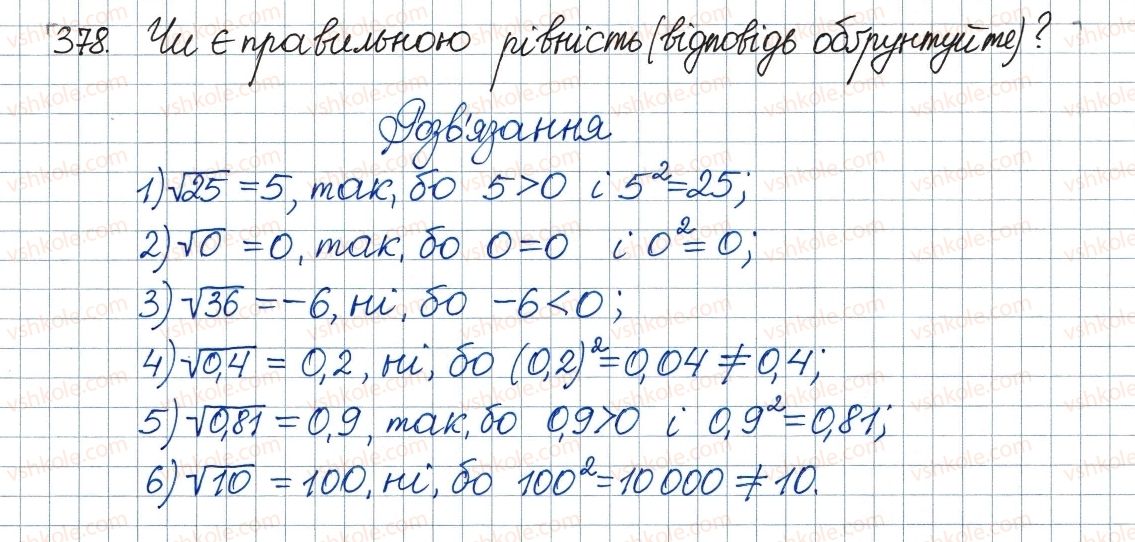 378. Чи є правильною рівність (відповідь обґрунтуйте)?
Розв'язання
1) √25 = 5, так, бо 5>0 і 5²=25;
2) √0 = 0, так, бо 0=0 і 0²=0;
3) √36 = -6, ні, бо -6<0;
4) √0,4 = 0,2, ні, бо (0,2)²=0,04 ≠ 0,4;
5) √0,81 = 0,9, так, бо 0,9>0 і 0,9²=0,81;
6) √10 = 100, ні, бо 100²=10000 ≠ 10.